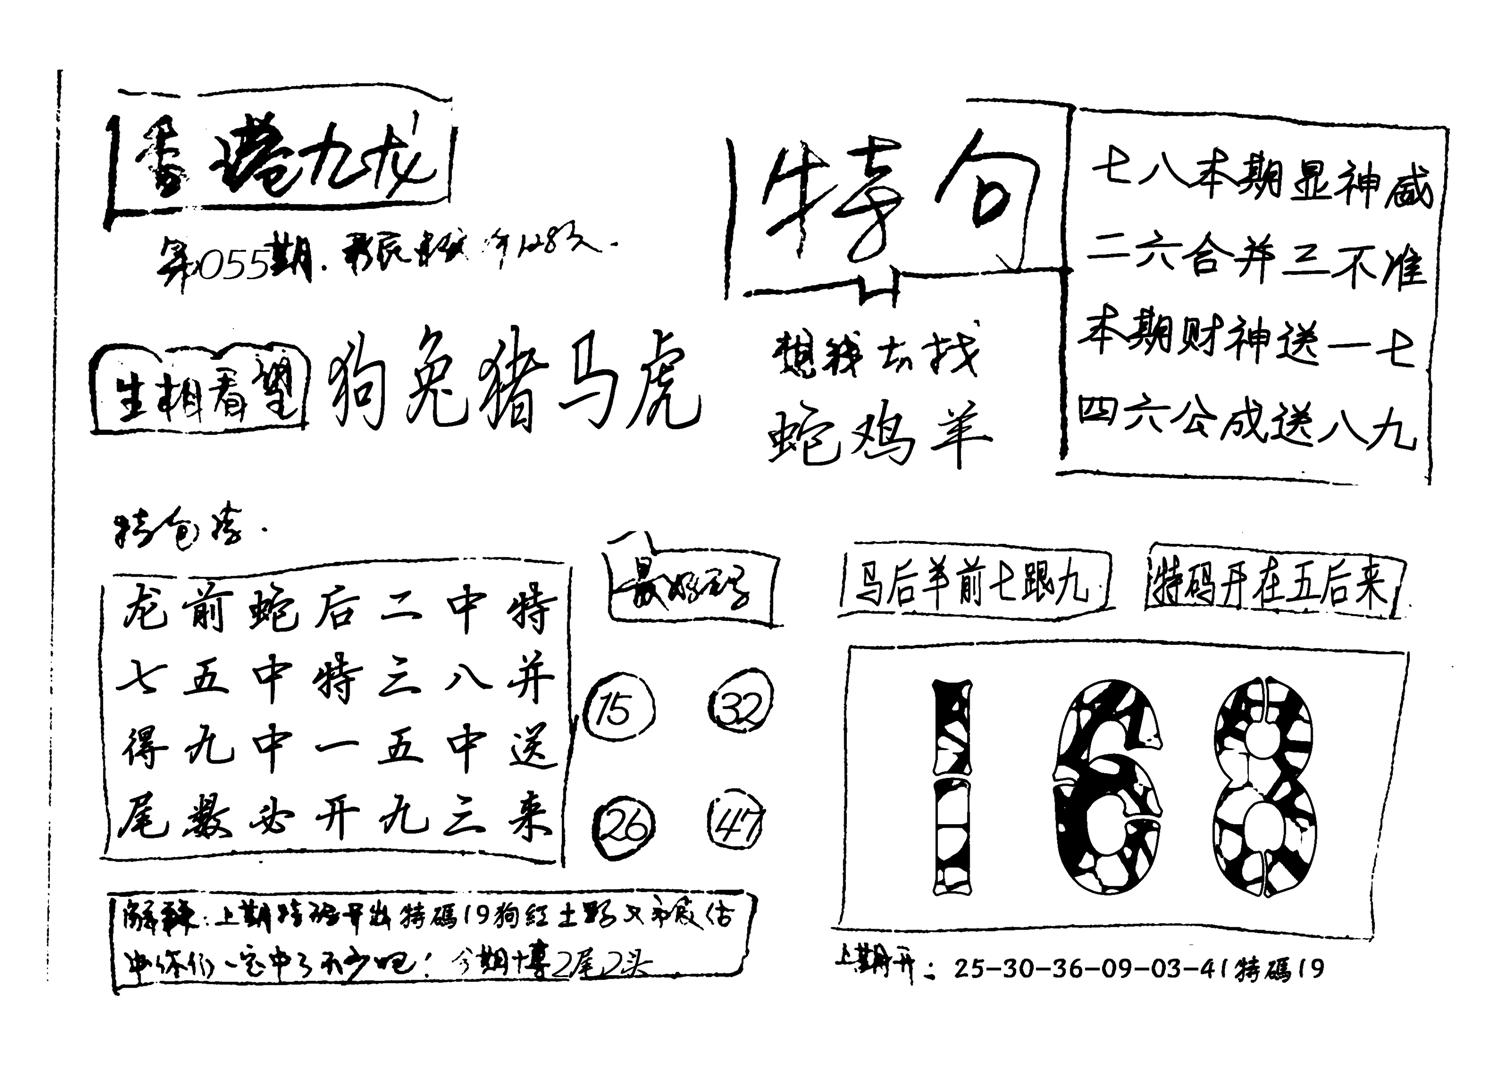 香港九龙
第055期.
生相看望
狗兔猪马虎
特句
想钱去找
蛇鸡羊
七八本期显神威
二六合并三不准
本期财神送一七
四六公成送八九
特包活.
龙前蛇后二中特
七五中特三八并
得九中一五中送
尾数必开九三来
最好码
15 32
26 47
马后羊前七跟九
特码开在五后来
168
解释:上期特码开出特碼19狗红土
你们一定中了不少吧! 今期博2尾2头
上期开: 25-30-36-09-03-41特碼19